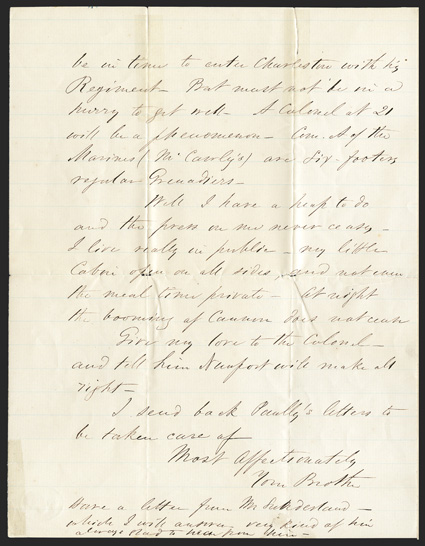 be in time to enter Charleston with his
Regiment - But must not be in a
hurry to get well - A Colonel at 21
will be a phenomenon - Com. A of the
Marines (McCawly's) are Six-footers
regular Grenadiers -
Well I have a heap to do
and the press on me never ceases -
I live really in public - my little
Cabin open on all sides, and not even
the meal time private - At night
the booming of Cannon does not cease
Give my love to the Colonel -
and tell him Newport will make all
right -
I send back Paully's letters to
be taken care of
Most Affectionately
Your Brother
Have a letter from Mr Sunderland -
which I will answer very kind of him
always glad to hear from him -